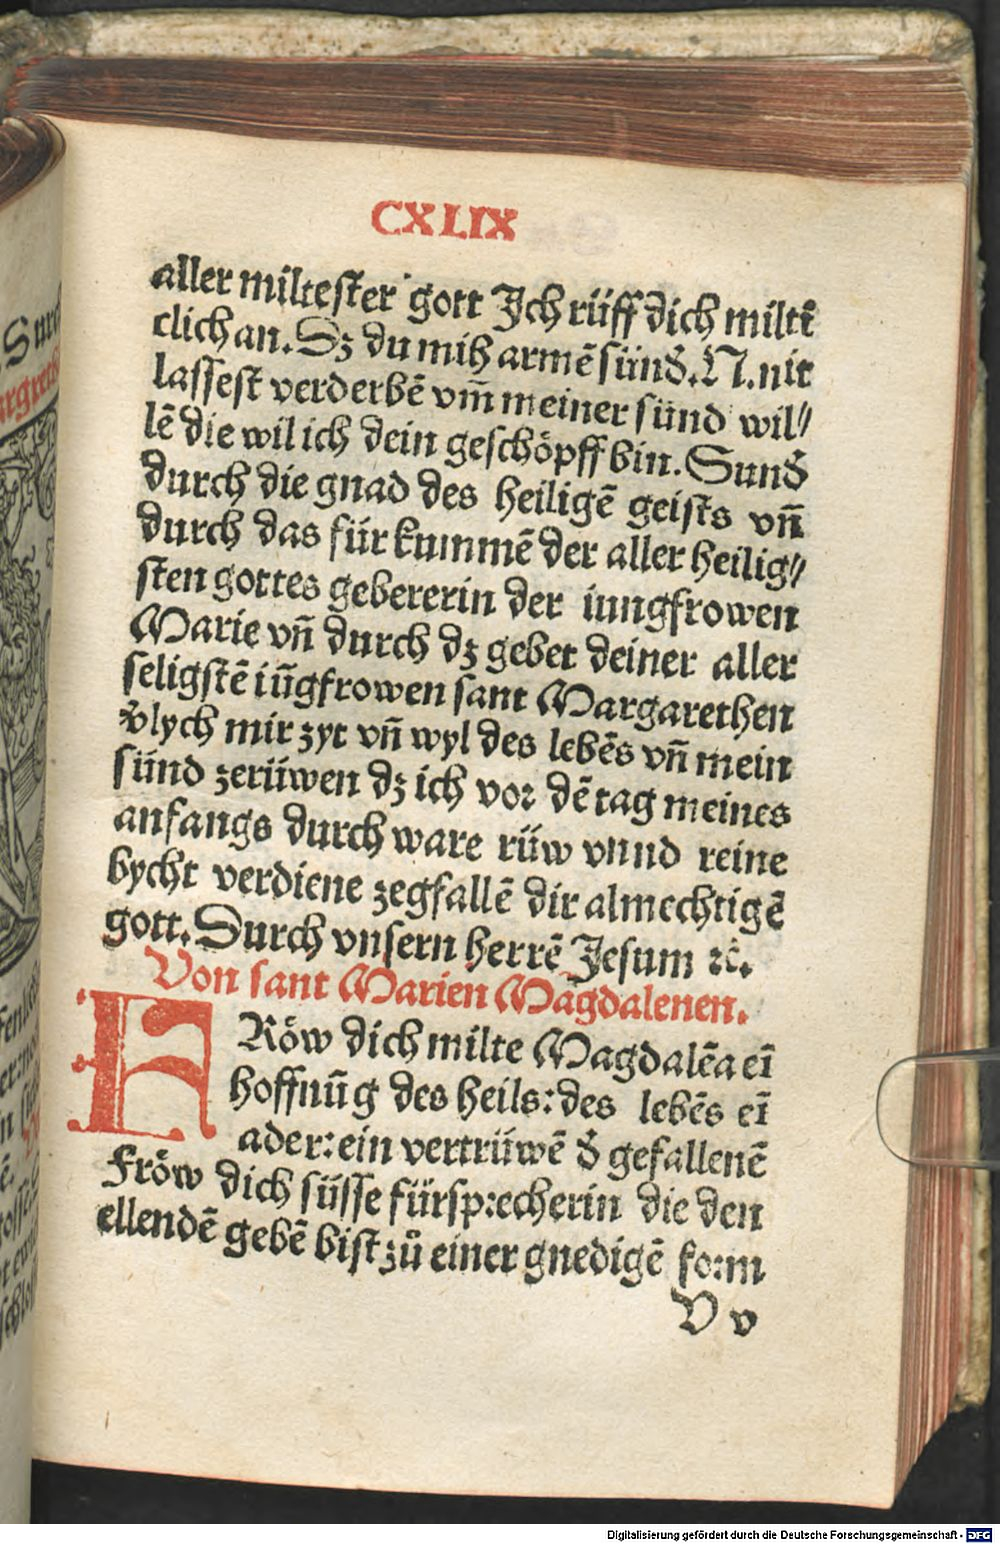 CXLIX
aller miltester gott Ich rüff dich milti
clich an. Dz du mih armē sünd᷎. N. nit
lassest verderbē vm̄ meiner sünd wil⸗
lē die wil ich dein geschöpff bin. Sund᷎
durch die gnad des heiligē geists vn̄
durch das für kummē der aller heilig⸗
sten gottes gebererin der iungfrowen
Marie vn̄ durch dz gebet deiner aller
seligstē iūgfrowen sant Margarethen
v᷎lych mir zyt vn̄ wyl des lebēs vn̄ mein
sünd zerüwen dz ich vor dē tag meines
anfangs durch ware rüw vnnd reine
bycht verdiene zegfallē dir almechtigē
gott. Durch vnsern herrē Jesum ꝛc̄.
Von sant Marien Magdalenen.
FRöw dich milte Magdalēa eī
hoffnūg des heils: des lebēs eī
ader: ein vertrüwē d᷎ gefallenē
Fröw dich süsse fürsprecherin die den
ellendē gebē bist zů einer gnedigē form
V v
Digitalisierung gefördert durch die Deutsche Forschungsgemeinschaft - DFG